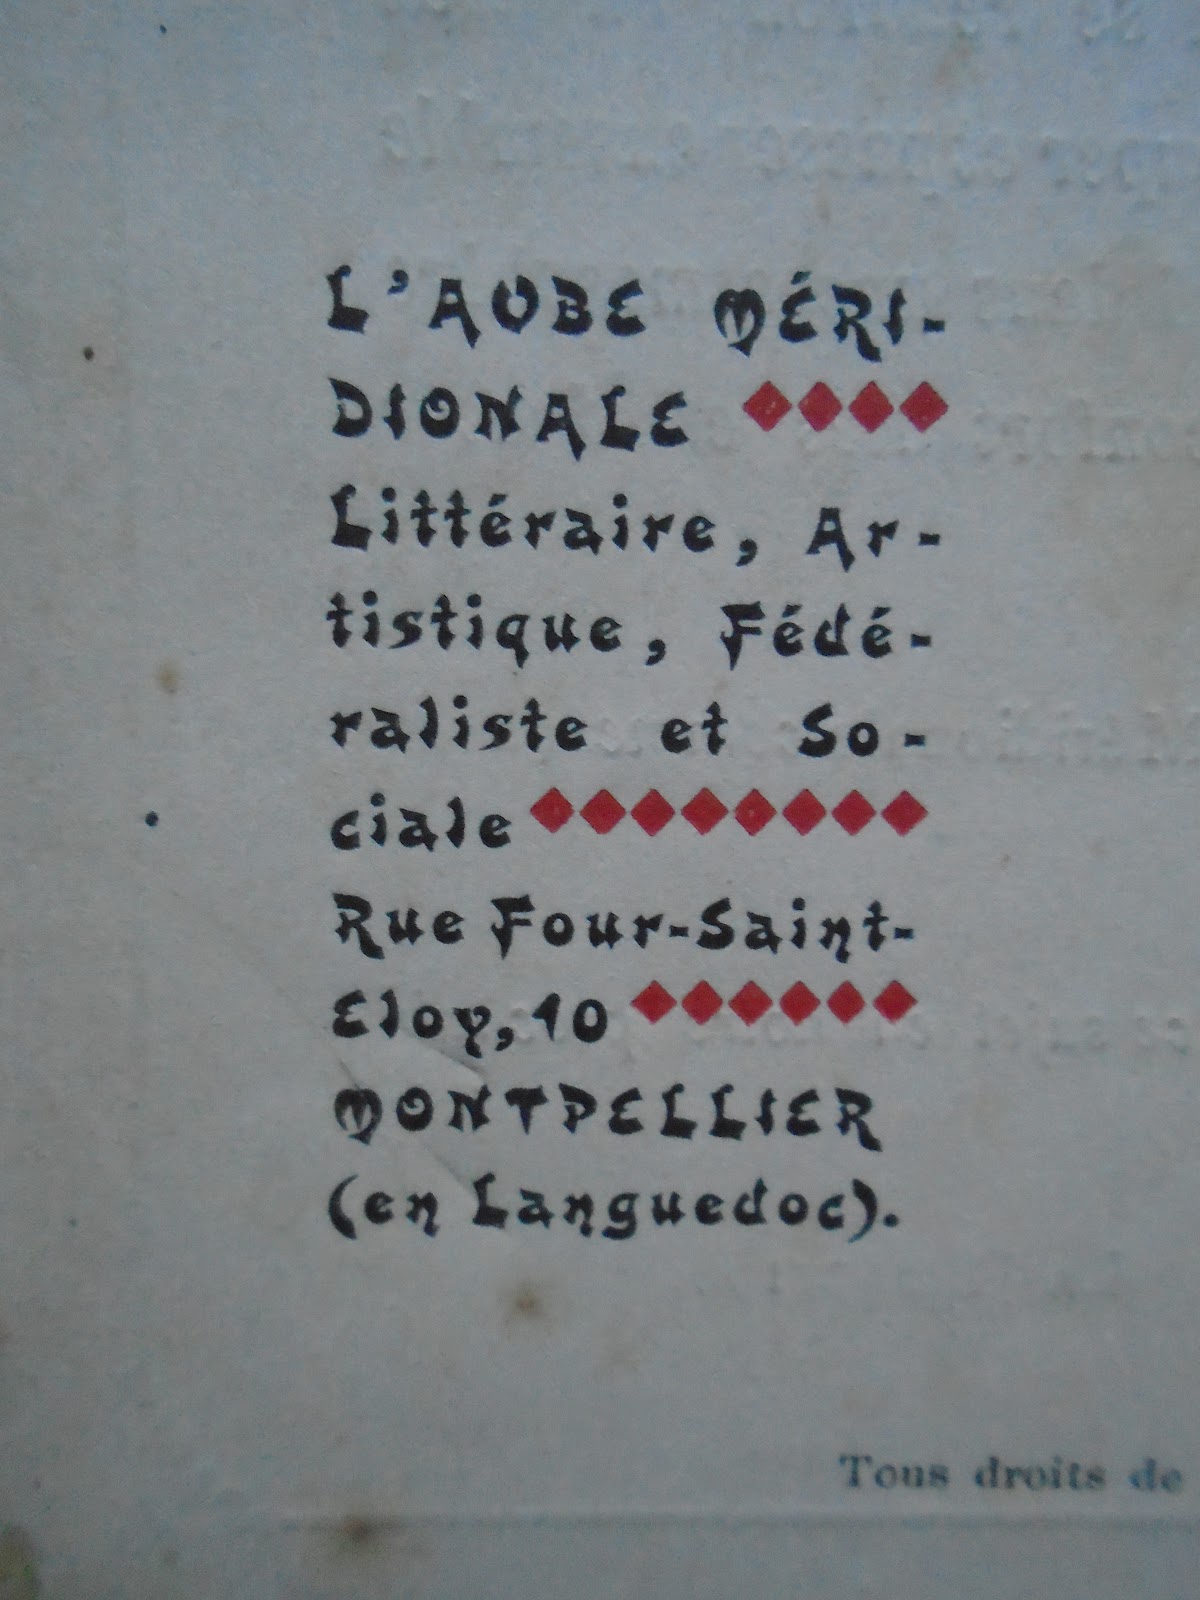 L'AUBE MÉRI-
DIONALE ◆◆◆◆
Littéraire, Ar-
tistique, Fédé-
raliste et So-
ciale ◆◆◆◆◆◆◆◆
Rue Four-Saint-
Eloy, 10 ◆◆◆◆◆◆
MONTPELLIER
(en Languedoc).
Tous droits de